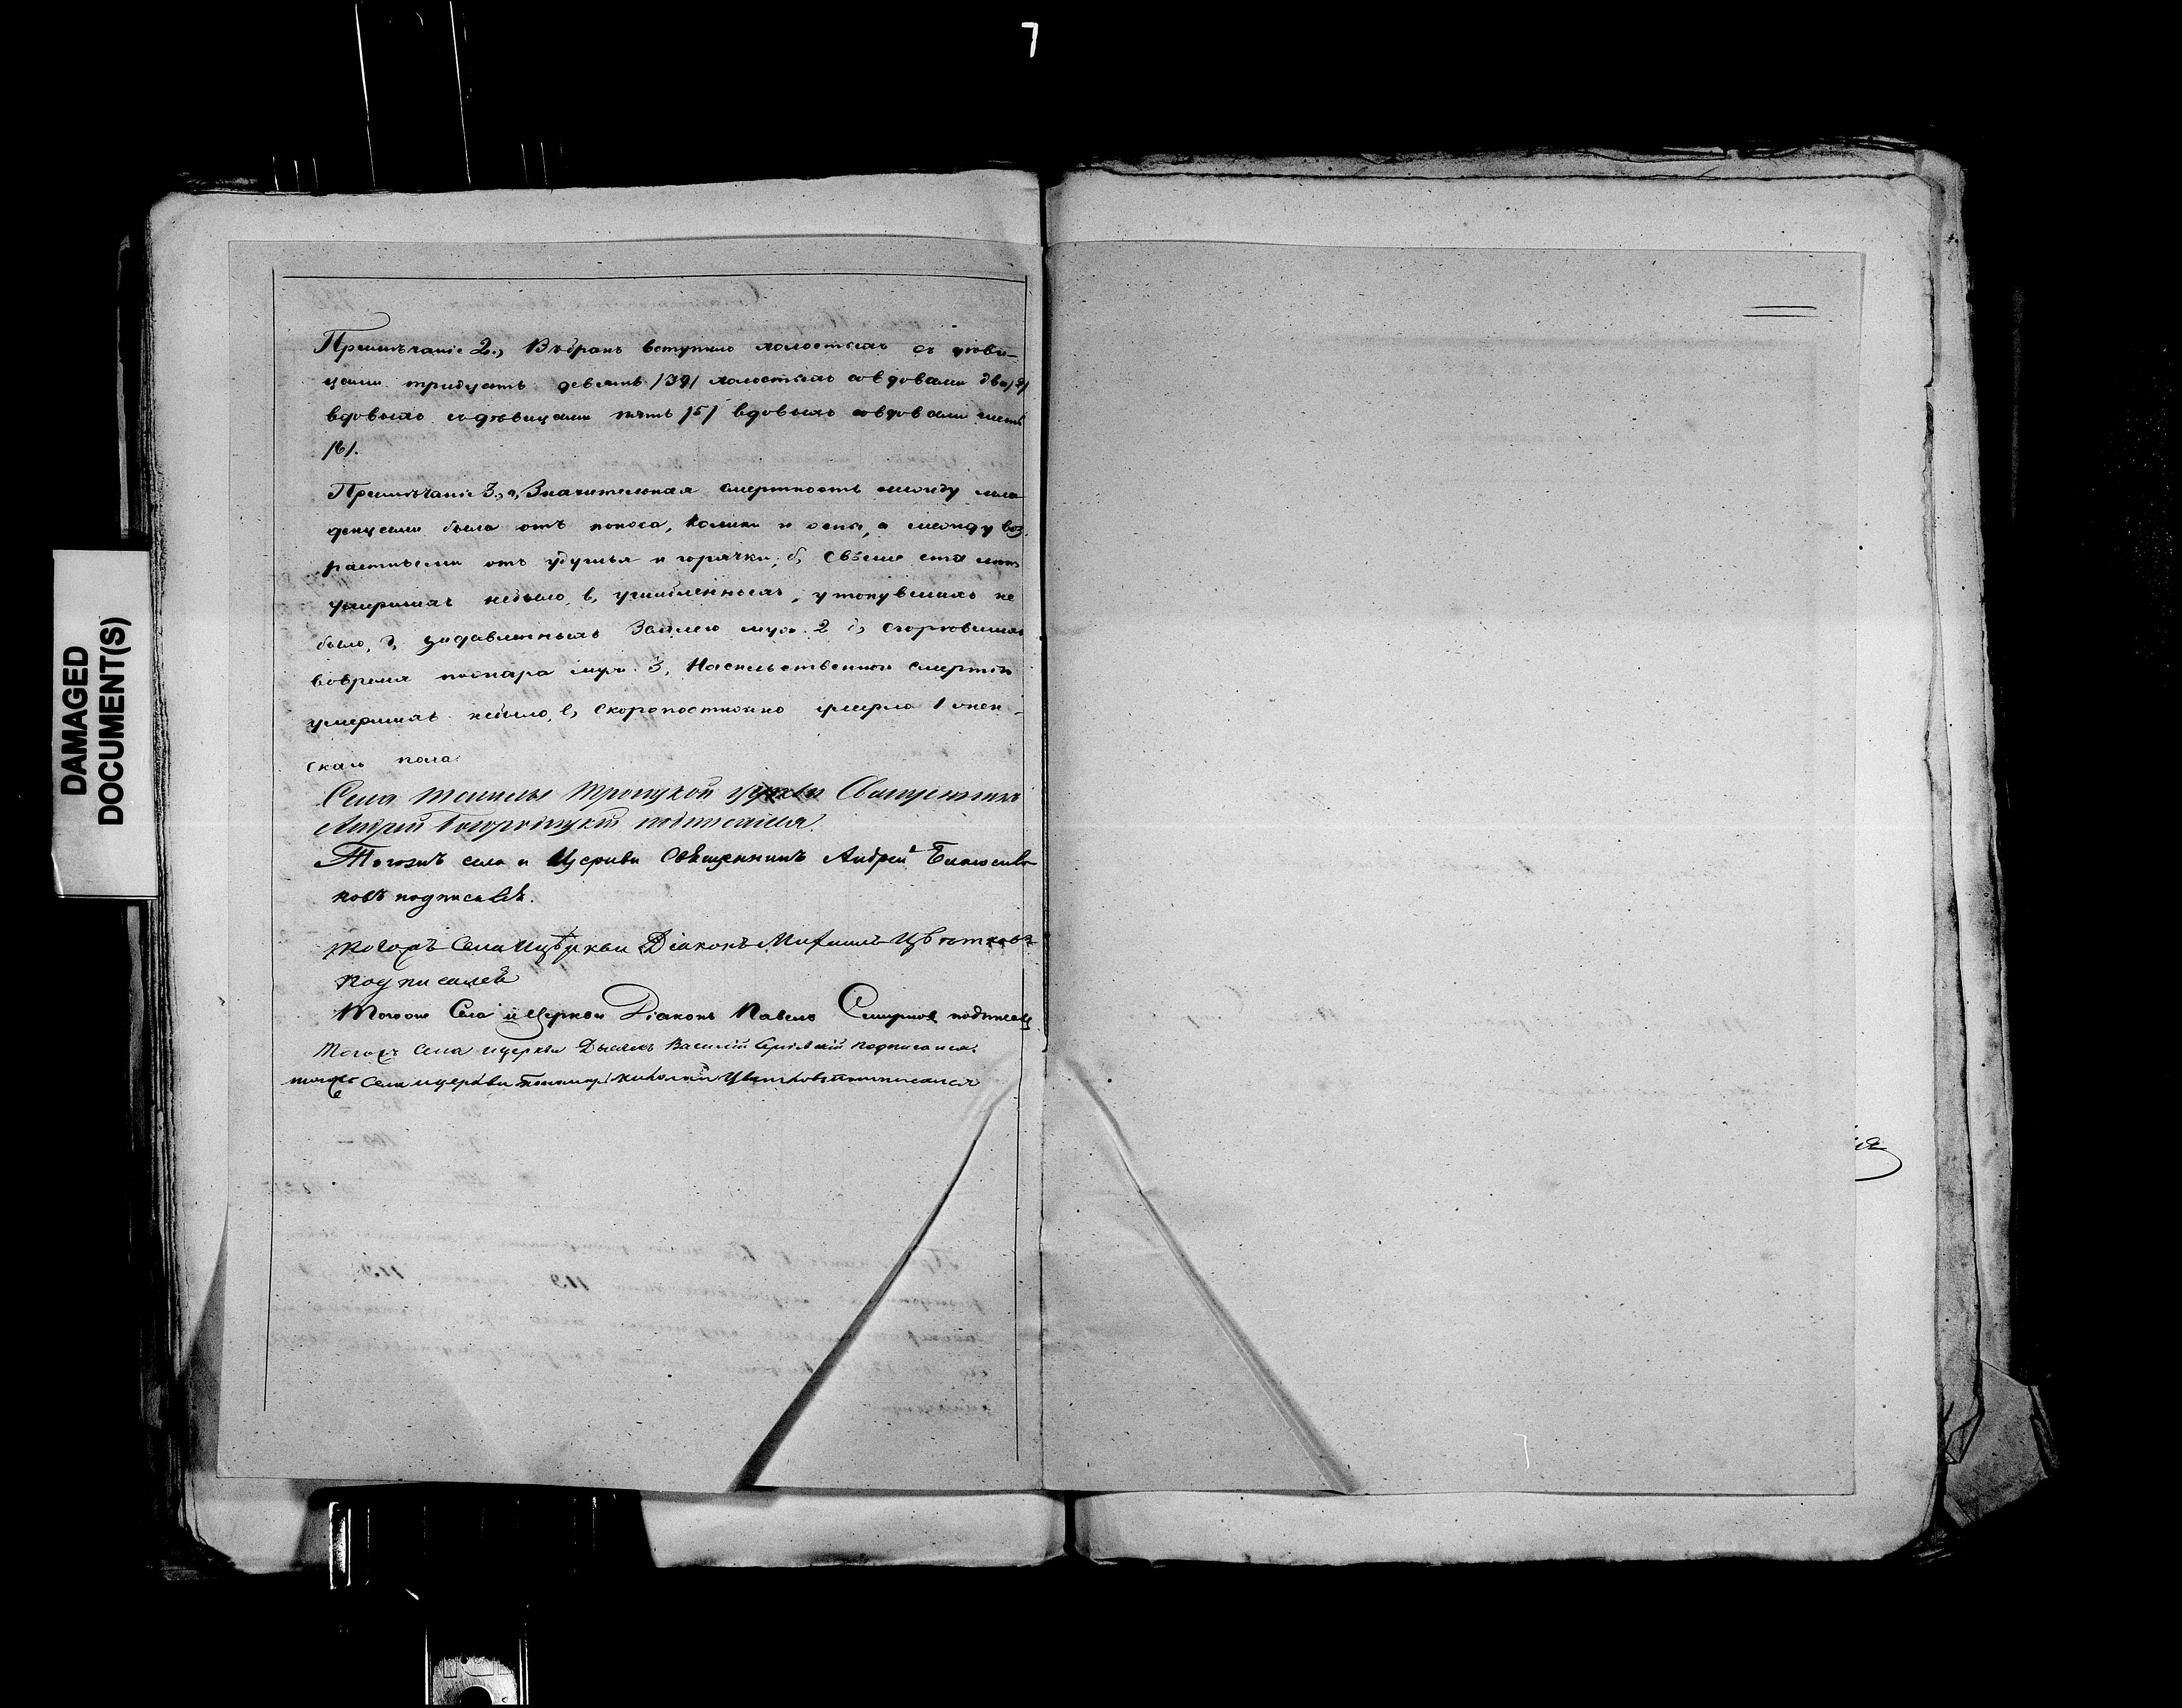 7
DAMAGED
DOCUMENT(S)
Примѣчаніе 2., Въбракъ вступило холостыхъ съ дѣви-
цами тридцать девять /39/ холостыхъ совдовами два /2/
вдовыхъ содѣвицами пять /5/ вдовыхъ совдовами шесть
/6/.
Примѣчаніе 3., а, Значительная смертность между мла
денцами была отъ поноса, колики и оспы, а между воз
растными отъ удушья и горячки, б, Свыше ста лѣтъ
умершихъ небыло, в, утопувшихъ не
было, г, задавленныхъ Землею муж. 2 д, сгорѣвшихъ
вовремя пожара муж. 3, Насильственной смертію
умершихъ небыло, е, Скоропостижно умерло 1 жен-
скаго пола.
Села Троицкой церкви Священникъ
Андрей Богородицкій подписался.
Тогожъ села и Церкви Священникъ Андрей
ковъ подписался.
тогожъ Села ицеркви Діаконъ Михаилъ Цвѣтковъ
подписался
Тогоже Села иЦеркви Діаконъ Павелъ Смирнов подписалъ
Тогожъ Села ицеркви Дьячекъ Василій подписался.
тогоже Села ицеркви Николай Цвѣтковъ подписался